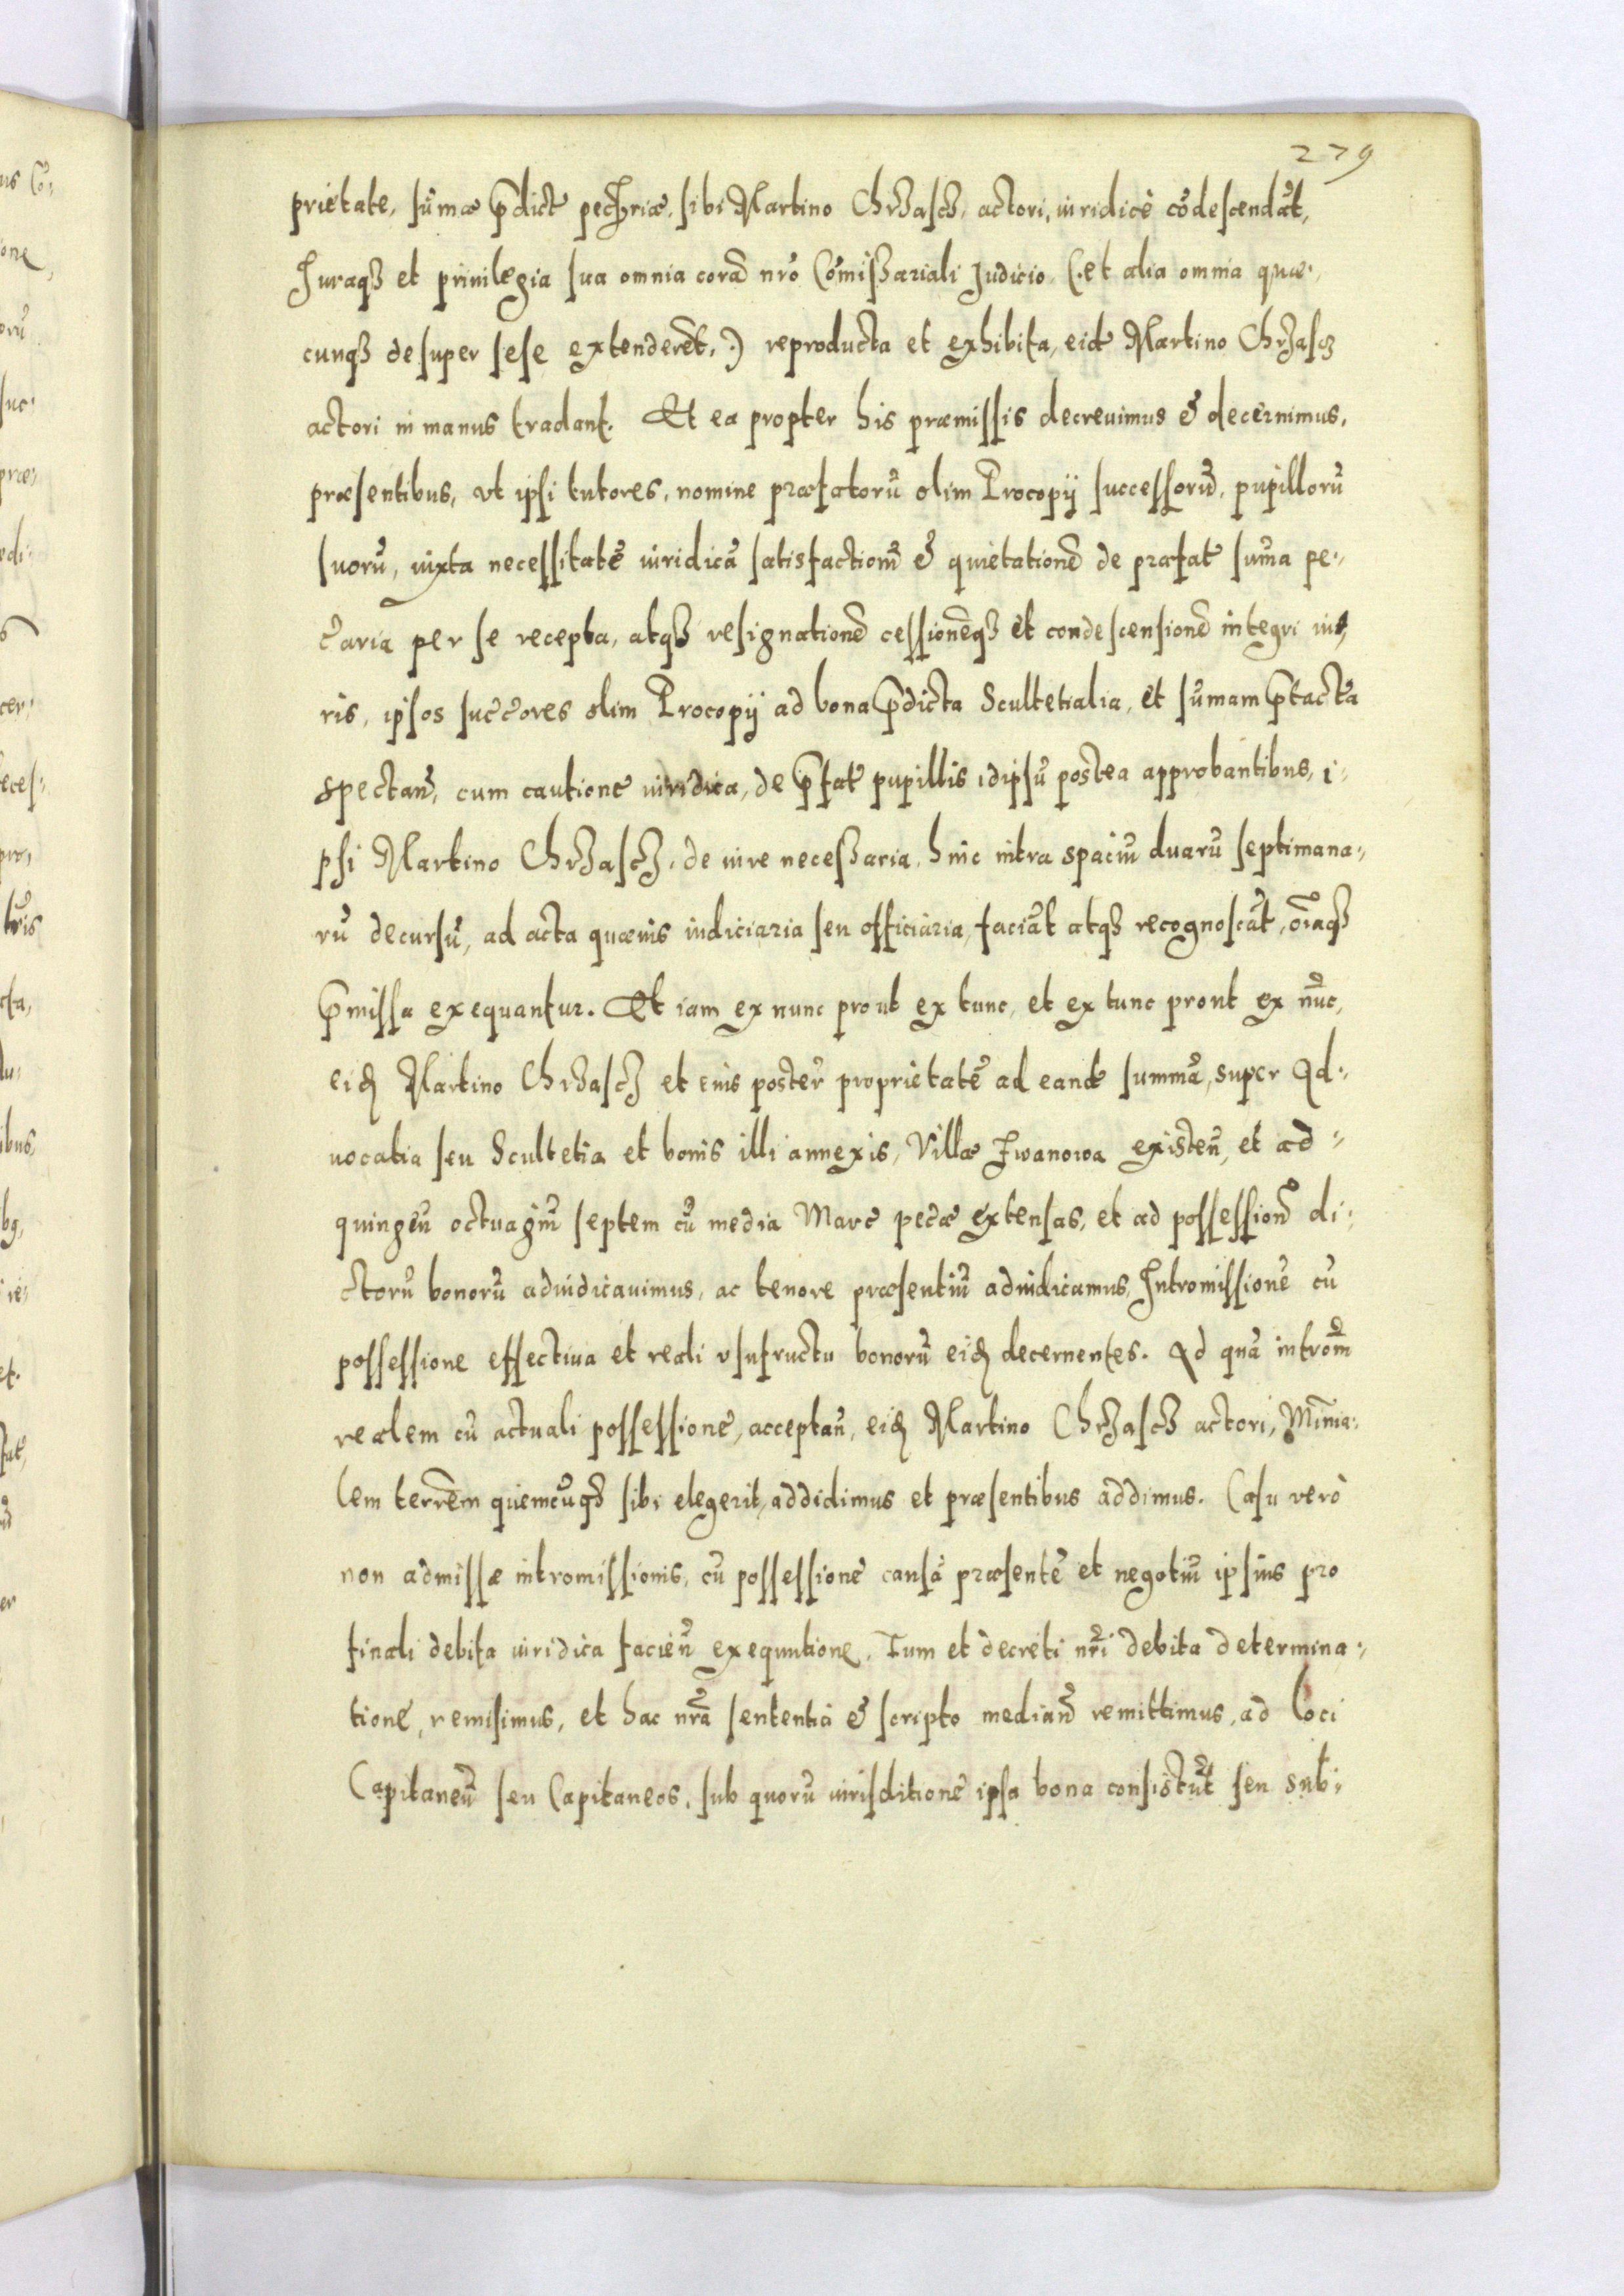 279
prietate, sūmæ p̄dict̄ pecūriæ, sibi Martino Chrząscz, actori, iuridicè cōdescendāt,
Iuraqȝ et priuilegia sua omnia corā nr̄o Cōmißariali Iudicio (.et alia omnia quæ-
cunqȝ desuper sese extenderēt.) reproducta et exhibita, eid̄ Martino Chrząscz
actori in manus tradant. Et ea propter his præmissis decreuimus & decernimus,
præsentibus, vt ipsi tutores, nomine præfatorū olim Procopij successorū, pupillorū
suorū, iuxta necessitatē iuridicā satisfactionē & quietationē de præfat̄ sum̄a pe-
c̄aria per se recepta, atqȝ resignationē cessionēqȝ et condescensionē integri iu-
ris, ipsos succ̄ores olim Procopij ad bona p̄dicta Scultetialia, et sūmam p̄tactā
spectan̄, cum cautione iuridica, de p̄fat̄ pupillis idipsū postea approbantibus, i-
psi Martino Chrząscz, de iure neceßaria, hinc intra spaciū duarū septimana-
rū decursū, ad acta quæuis iudiciaria seu officiaria, faciāt atqȝ recognoscāt, oīaqȝ
p̄missa exequantur. Et iam ex nunc prout ex tunc, et ex tunc prout ex nūc,
eid̄ Martino Chrząscz et eius poster̄ proprietatē ad eand̄ summā, super Ad-
uocatia seu Scultetia et bonis illi annexis, Villæ Iwanowa existen̄, et ad
quingen̄ octuagīn̄ septem cū media Marc̄ pec̄æ extensas, et ad possessionē di-
ctorū bonorū adiudicauimus, ac tenore præsentiū adiudicamus, Intromissionē cū
possessione effectiua et reali vsufructu bonorū eid̄ decernentes. Ad quā introm̄
realem cū actuali possessionē, acceptan̄, eid̄ Martino Chrząscz actori, Mīnia-
lem terrēm quemcūqȝ sibi elegerit, addidimus et præsentibus addimus. Casu verò
non admissæ intromissionis, cū possessionē causā præsentē et negotiū ipsius pro
finali debita iuridica facien̄ exequutione, Tum et decreti nr̄i debita determina-
tionē, remisimus, et hac nr̄a sententia & scripto median̄ remittimus, ad loci
Capitaneū seu Capitaneos, sub quorū iurisditionē ipsa bona consistūt seu subi-